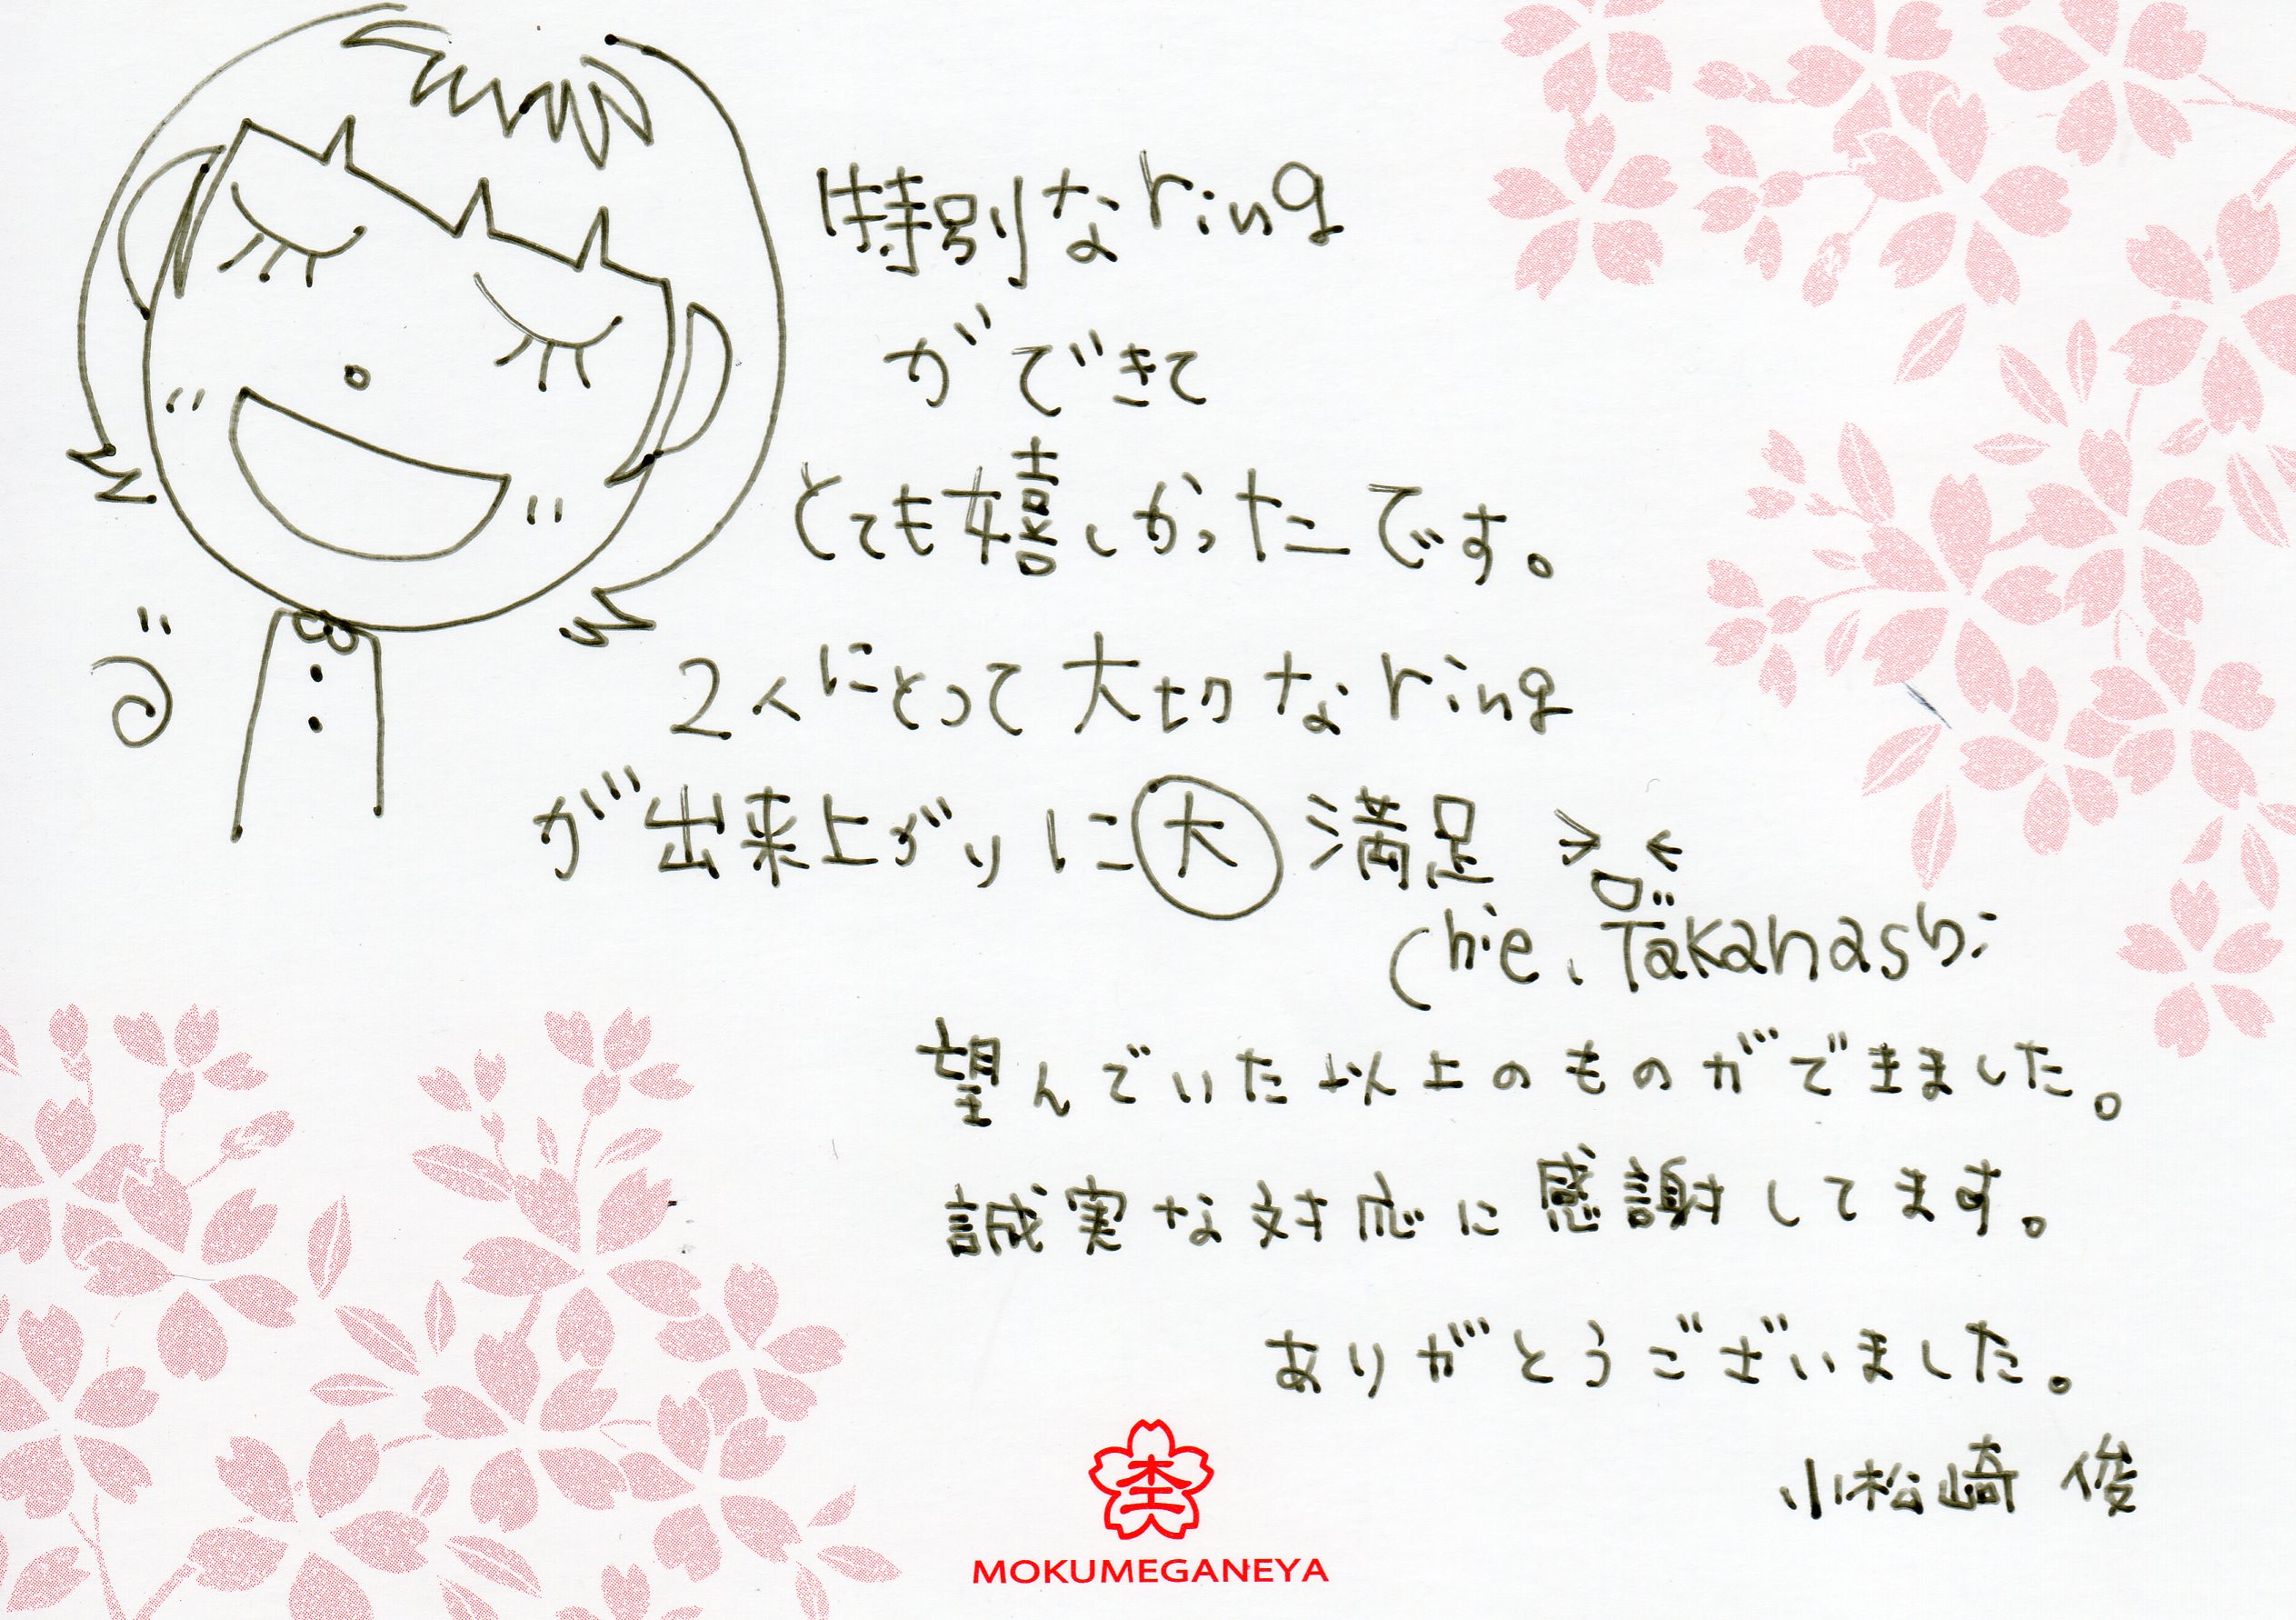 特別なring
ができて
とても嬉しかったです。
2人にとって大切なring
が出来上がりに大満足
Chie. Takanashi
望んでいた以上のものができました。
誠実な対応に感謝してます。
ありがとうございました。
小松崎 俊
MOKUMEGANEYA